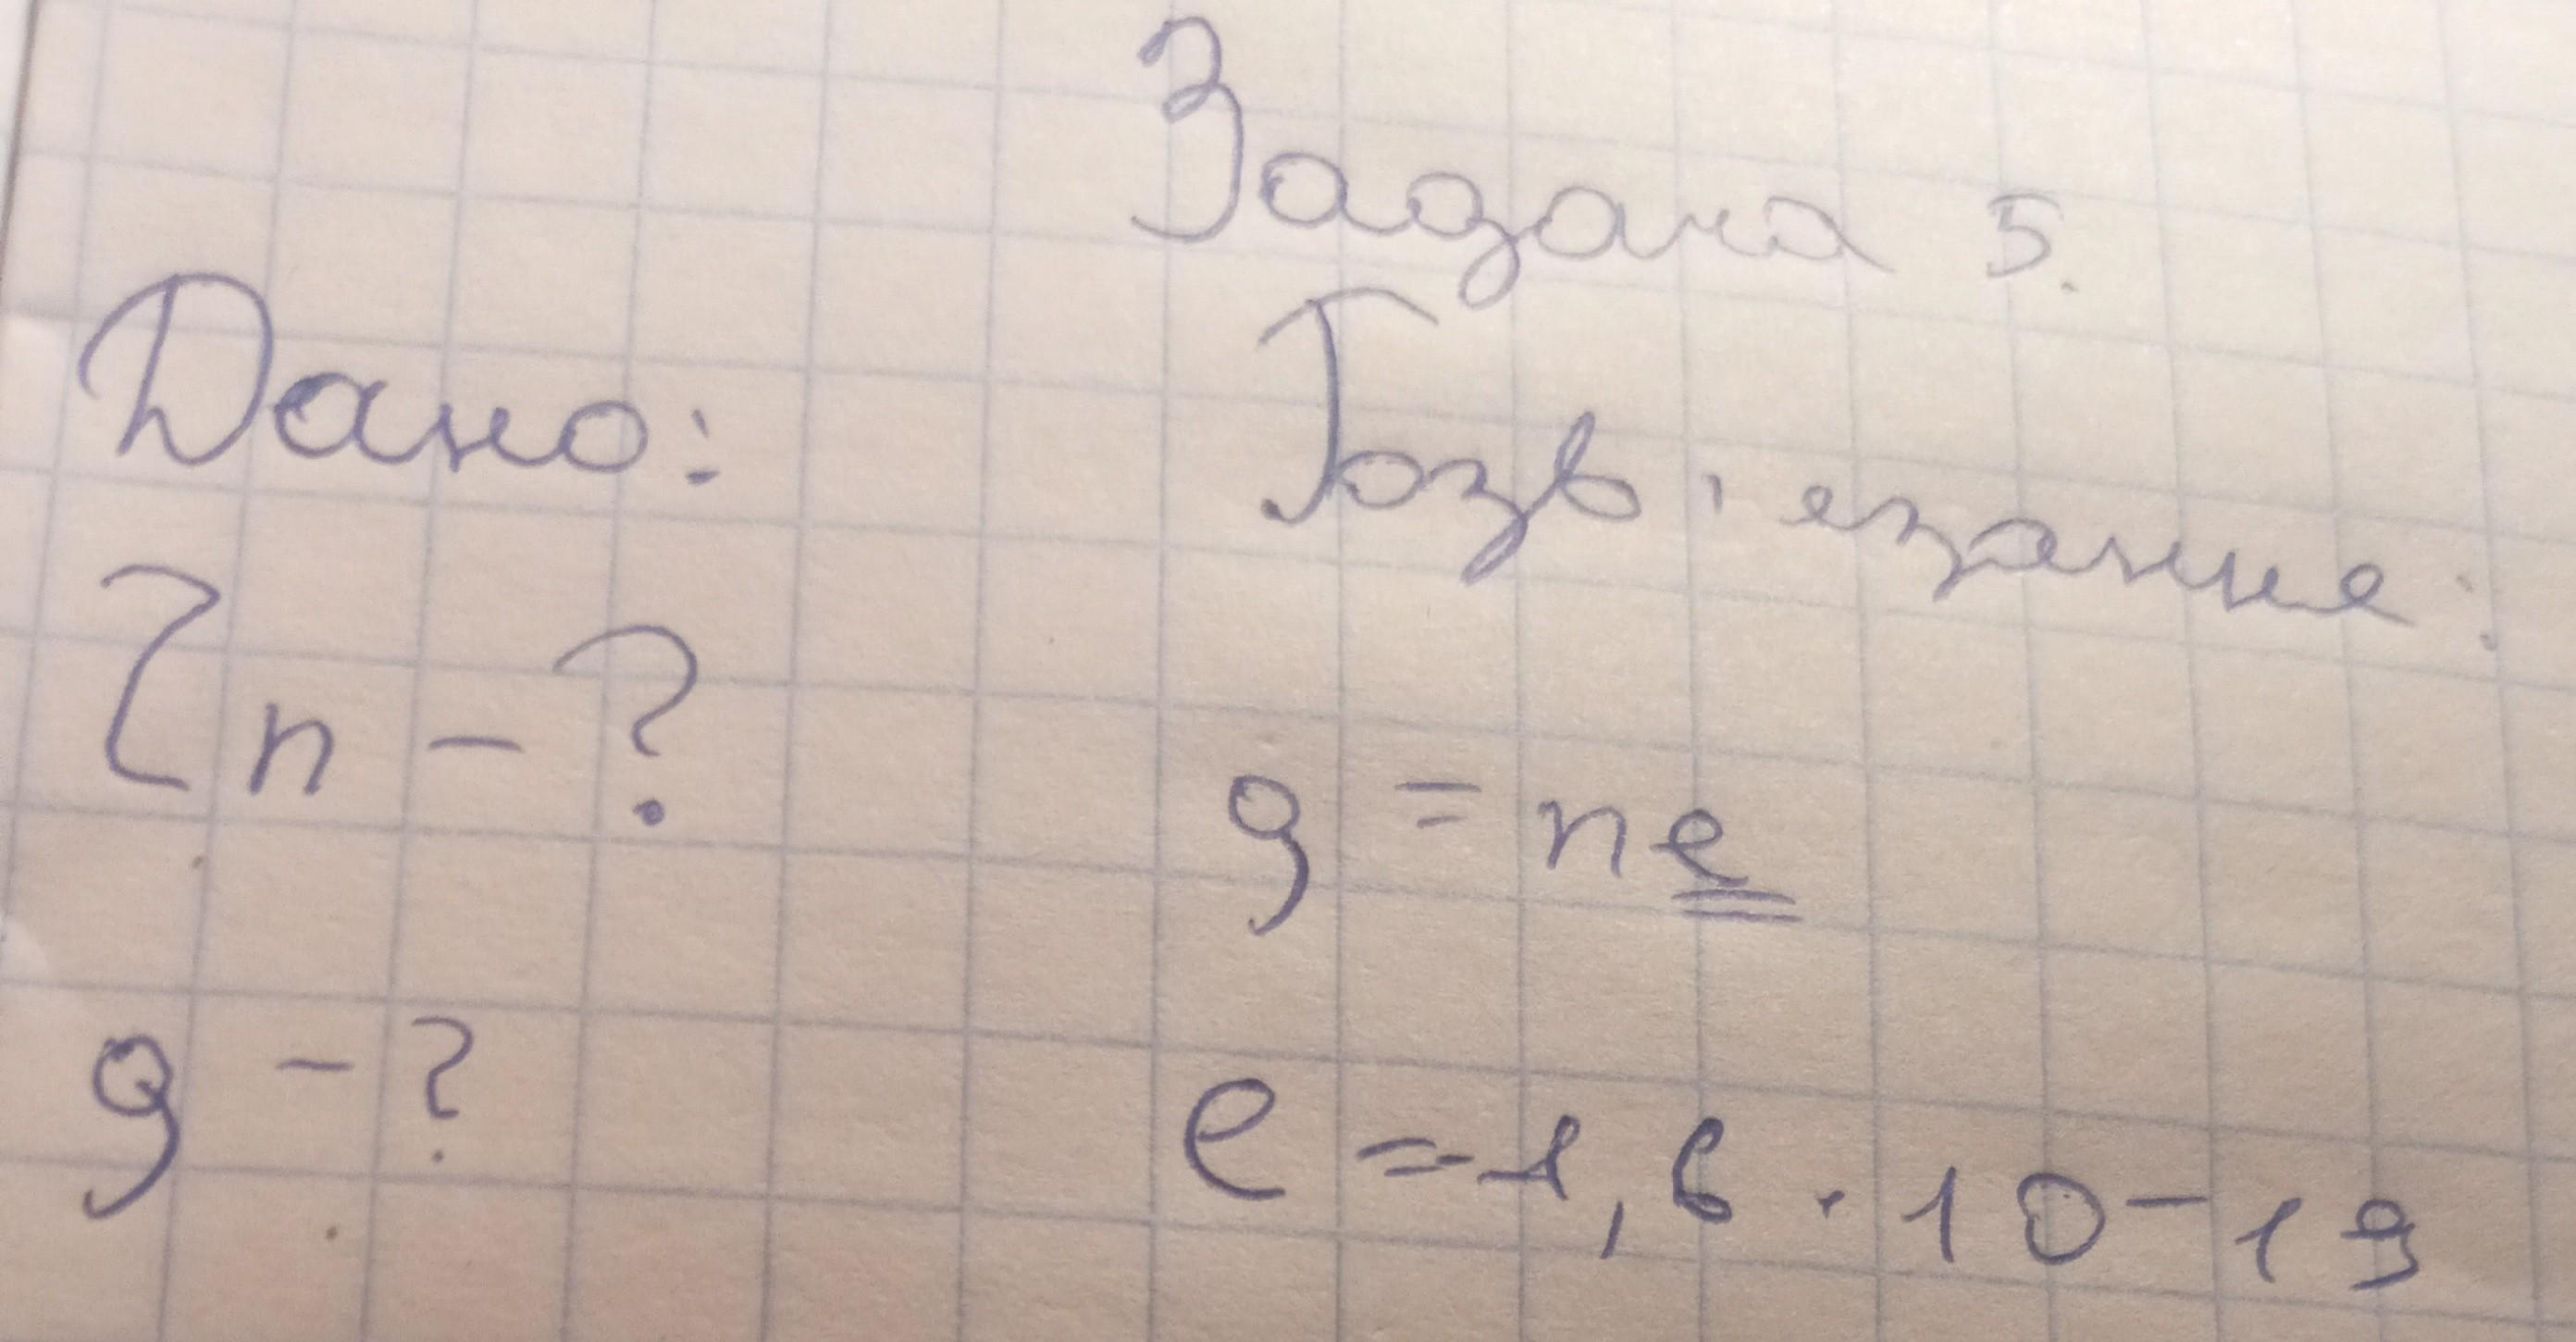 Задача 5.
Дано: Розв'язання:
Zn - ?
q = ne
q - ?
e = -1,6 · 10^-19